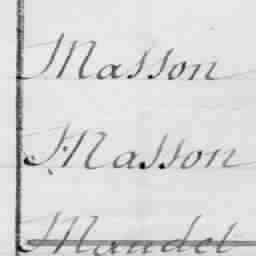 Masson
Masson
Mandel